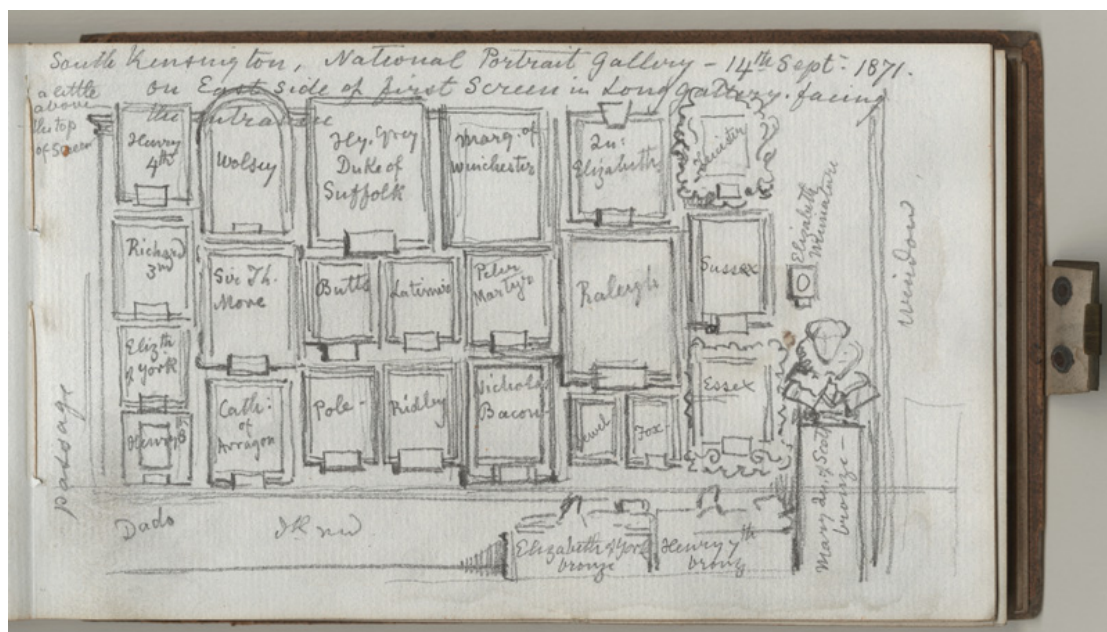 South Kensington, National Portrait Gallery - 14th Sept: 1871.
on East side of first Screen in Long Gallery. facing
the entrance
a little
above
the top
of Screen
Henry
4th
Wolsey
Hy. Grey
Duke of
Suffolk
Marq. of
Winchester
Qu:
Elizabeth
Leicester
Elizabeth
Miniature
window
Richard
3rd
Sir Th.
More
Butts
Latimer
Peter
Martyr
Raleigh
Sussex
Elizth
of York
Henry 8
Cath:
of
Arragon
Pole -
Ridley
Nicholas
Bacon -
Jewel
Fox -
Essex
passage
Dado
Elizabeth of York
bronze
Henry 7th
bronz
Mary Qu. of Scots
bronze -